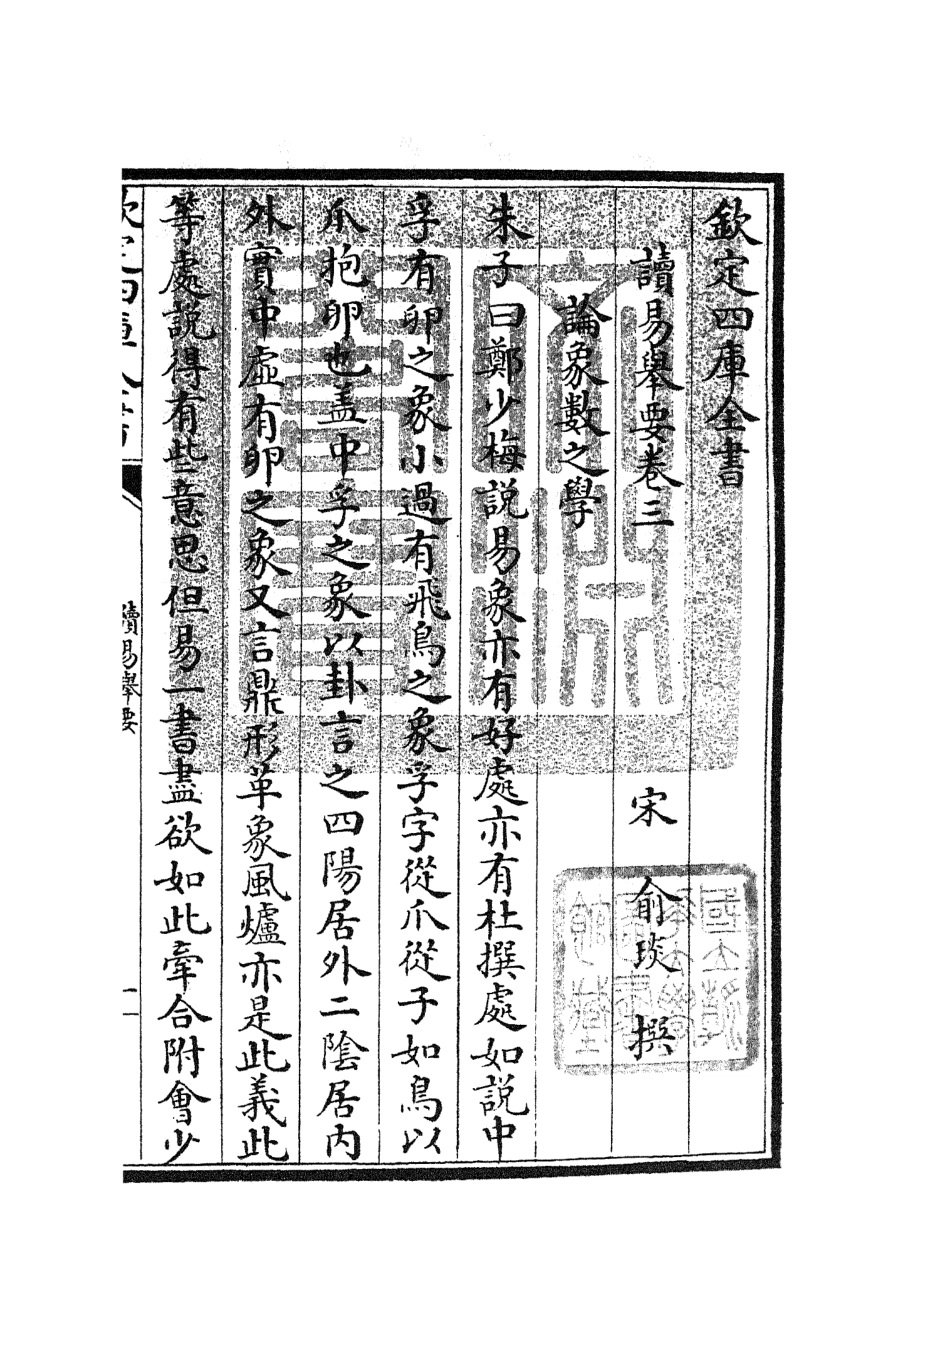 欽定四庫全書
讀易舉要卷三
宋　俞琰　撰
論象數之學
朱子曰鄭少梅説易象亦有好處亦有杜撰處如説中
孚有卵之象小過有飛鳥之象孚字從爪從子如鳥以
爪抱卵也盖中孚之象以卦言之四陽居外二陰居内
外實中虛有卵之象又言鼎形革象風爐亦是此義此
等處説得有些意思但易一書盡欲如此牽合附會少
讀易舉要
一